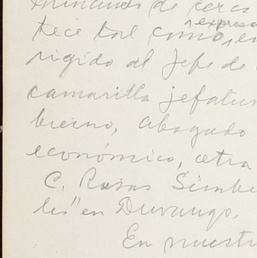 minando de cerca
expresa
tece tal como, en
rigido al Jefe de
camarilla jefatur
bierno, abogado
económico, otra
C. Rosas Simbe
les" en Durango.
En nuestr